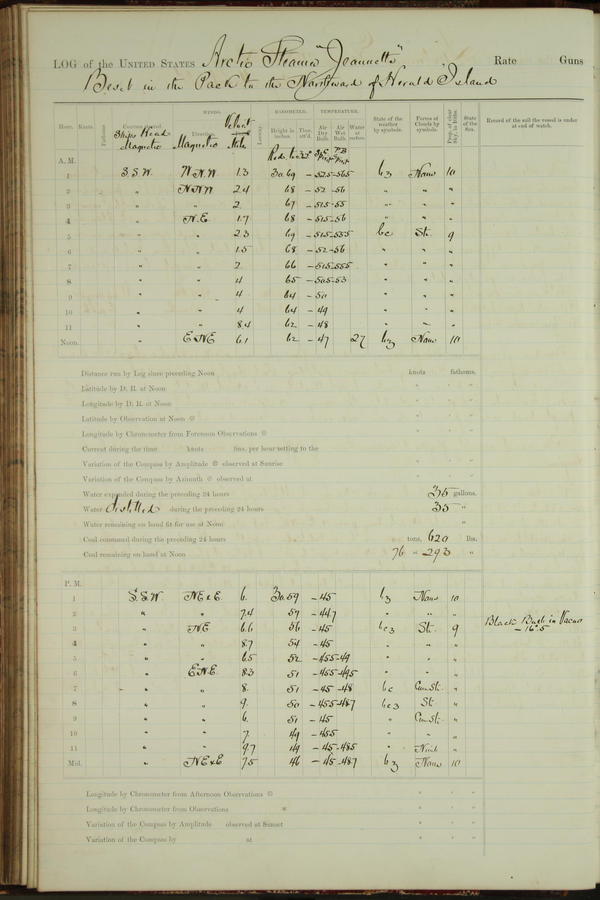 LOG of the UNITED STATES Arctic Steamer "Jeannette" Rate Guns
Beset in the Pack to the Northward of Herald Island
WINDS. BAROMETER. TEMPERATURE.
Hour. Knots. Fathoms. Courses steered Ships Head Magnetic Direction Magnetic Velocity Miles Leeway. Height in inches. Ther. att'd. Air Dry Bulb. Air Wet Bulb. Water at surface. State of the weather by symbols. Forms of Clouds by symbols. Prop. of clear Sky, in 10ths. State of the Sea. Record of the sail the vessel is under at end of watch.
A. M. Red. to 32°
1 S.S.W. N.N.W 1.3 30.69 -52.5 -56.5 bz None 10
2 " NNW 2.4 68 -52 -56 " " "
3 " " 2 67 -51.5 -55 " " "
4 " N.E. 1.7 68 -51.5 -56 " " "
5 " " 2.3 69 -51.5 -55.5 bc St. 9
6 " " 1.5 68 -52 -56 " " "
7 " " 2 66 -51.5 -55.5 " " "
8 " " 4 65 -50.5 -53 " " "
9 " " 4 64 -50 " " "
10 " " 4 64 -49 " " "
11 " " 8.4 62 -48 " " "
Noon. " ENE 6.1 62 -47 27 bz None 10
Distance run by Log since preceding Noon knots fathoms.
Latitude by D. R. at Noon ° ' "
Longitude by D. R. at Noon ° ' "
Latitude by Observation at Noon ° ' "
Longitude by Chronometer from Forenoon Observations ° ' "
Current during the time knots fms. per hour setting to the
Variation of the Compass by Amplitude observed at Sunrise ° ' "
Variation of the Compass by Azimuth observed at ° ' "
Water expended during the preceding 24 hours 35 gallons.
Water distilled during the preceding 24 hours 35 "
Water remaining on hand fit for use at Noon "
Coal consumed during the preceding 24 hours tons, 620 lbs.
Coal remaining on hand at Noon 76 " 293 "
P. M.
1 S.S.W. NExE. 6. 30.59 -45 bz None 10
2 " " 7.4 57 -44.7 " " "
3 " NE 6.6 56 -45 bcz St. 9 Black Bulb in Vacuo -16.5
4 " " 8.7 54 -45 " " "
5 " " 6.5 52 -45.5 -49 " " "
6 " ENE 8.3 51 -45.5 -49.5 " " "
7 " " 8. 51 -45 -48 bc Cum.St. "
8 " " 9. 50 -45.5 -48.7 bcz St. "
9 " " 6. 51 -45 " Cum.St. "
10 " " 7. 49 -45.5 " " "
11 " " 9.7 49 -45 -48.5 "
Mid. " NExE 7.5 46 -45 -48.7 bz None 10
Longitude by Chronometer from Afternoon Observations ° ' "
Longitude by Chronometer from Observations ° ' "
Variation of the Compass by Amplitude observed at Sunset ° ' "
Variation of the Compass by at ° ' "